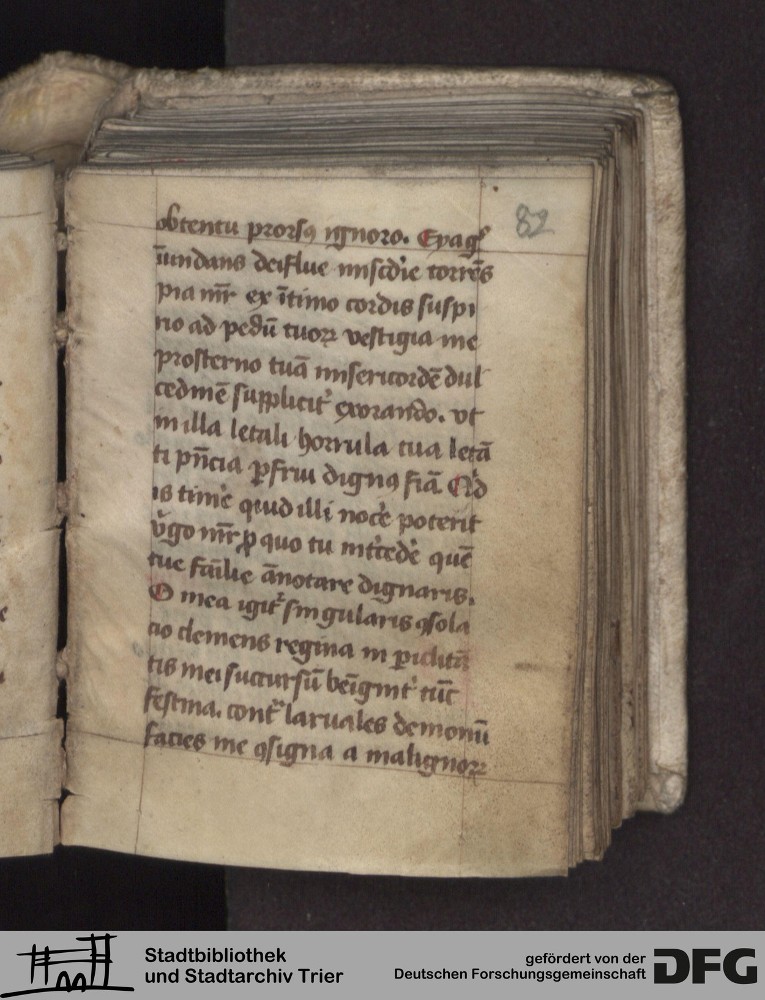 82
obtentu prorsꝯ ignoro.
īundans deifluе mīscd'ie torrēs
pia mr̄ ex ītimo cordis suspi
rio ad pedū tuoꝝ vestigia me
prosterno tuā misericordē dul
cedinē supplicit᷑ exorando. vt
in illa letali horrula tua letā
ti pn̄cia ꝑfrui dignꝯ fiā.
is time quid illi noce poterit
v̓go mr̄ ꝓ quo tu int̓cede quē
tue fāilie ānotare dignaris.
O mea igit᷑ singularis ꝯsola
cio clemens regina in ꝑiclitā
tis mei succursū beīgnit᷑ tūc
festina. cont᷑ laruales demonū
facies me ꝯsigna a malignoꝝ
Stadtbibliothek
und Stadtarchiv Trier
gefördert von der
Deutschen Forschungsgemeinschaft
DFG